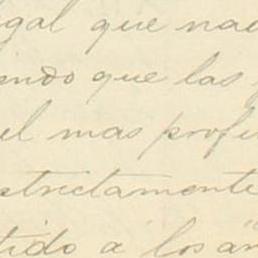 gal que nad
endo que las
el mas profu
strictamente
tido a los an